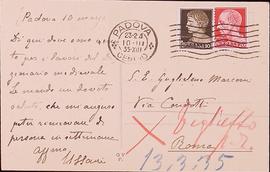 Padova 10 marzo
Di qui dove sono
per i lavori del
mando un devoto
saluto, che mi auguro
poter rinnovare di
persona in settimana
Affmo
Ussani
PADOVA
23-24
10-III
35-XIII
CENTRO
S. E. Guglielmo Marconi
Via Condotti
Roma
biglietto
13.3.35